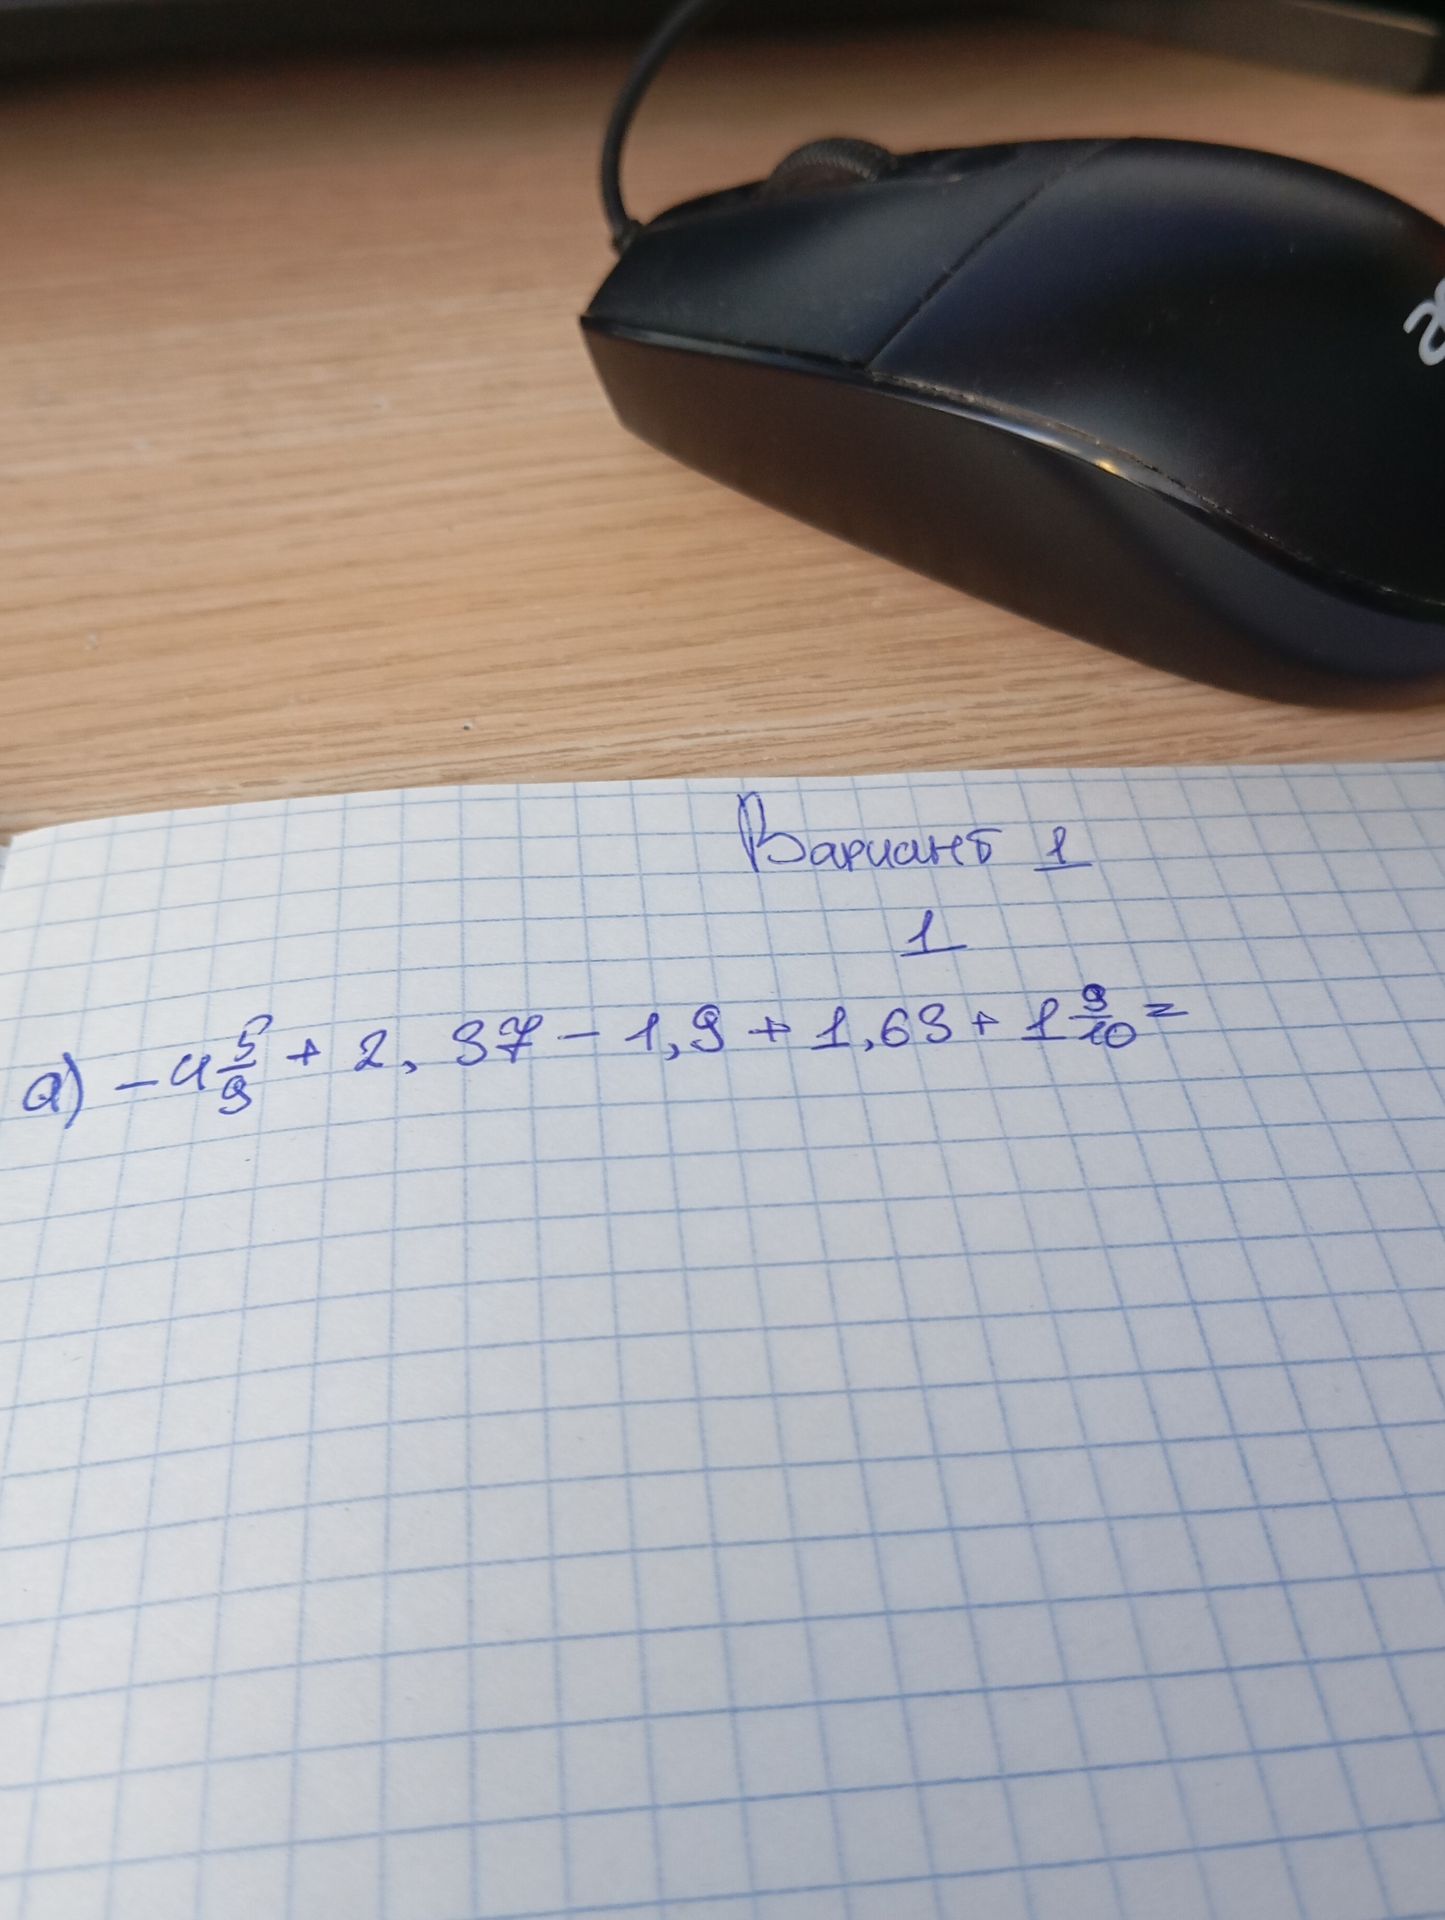 Вариант 1
1
а) -4 5/9 + 2,37 - 1,9 + 1,63 + 1 9/10 =